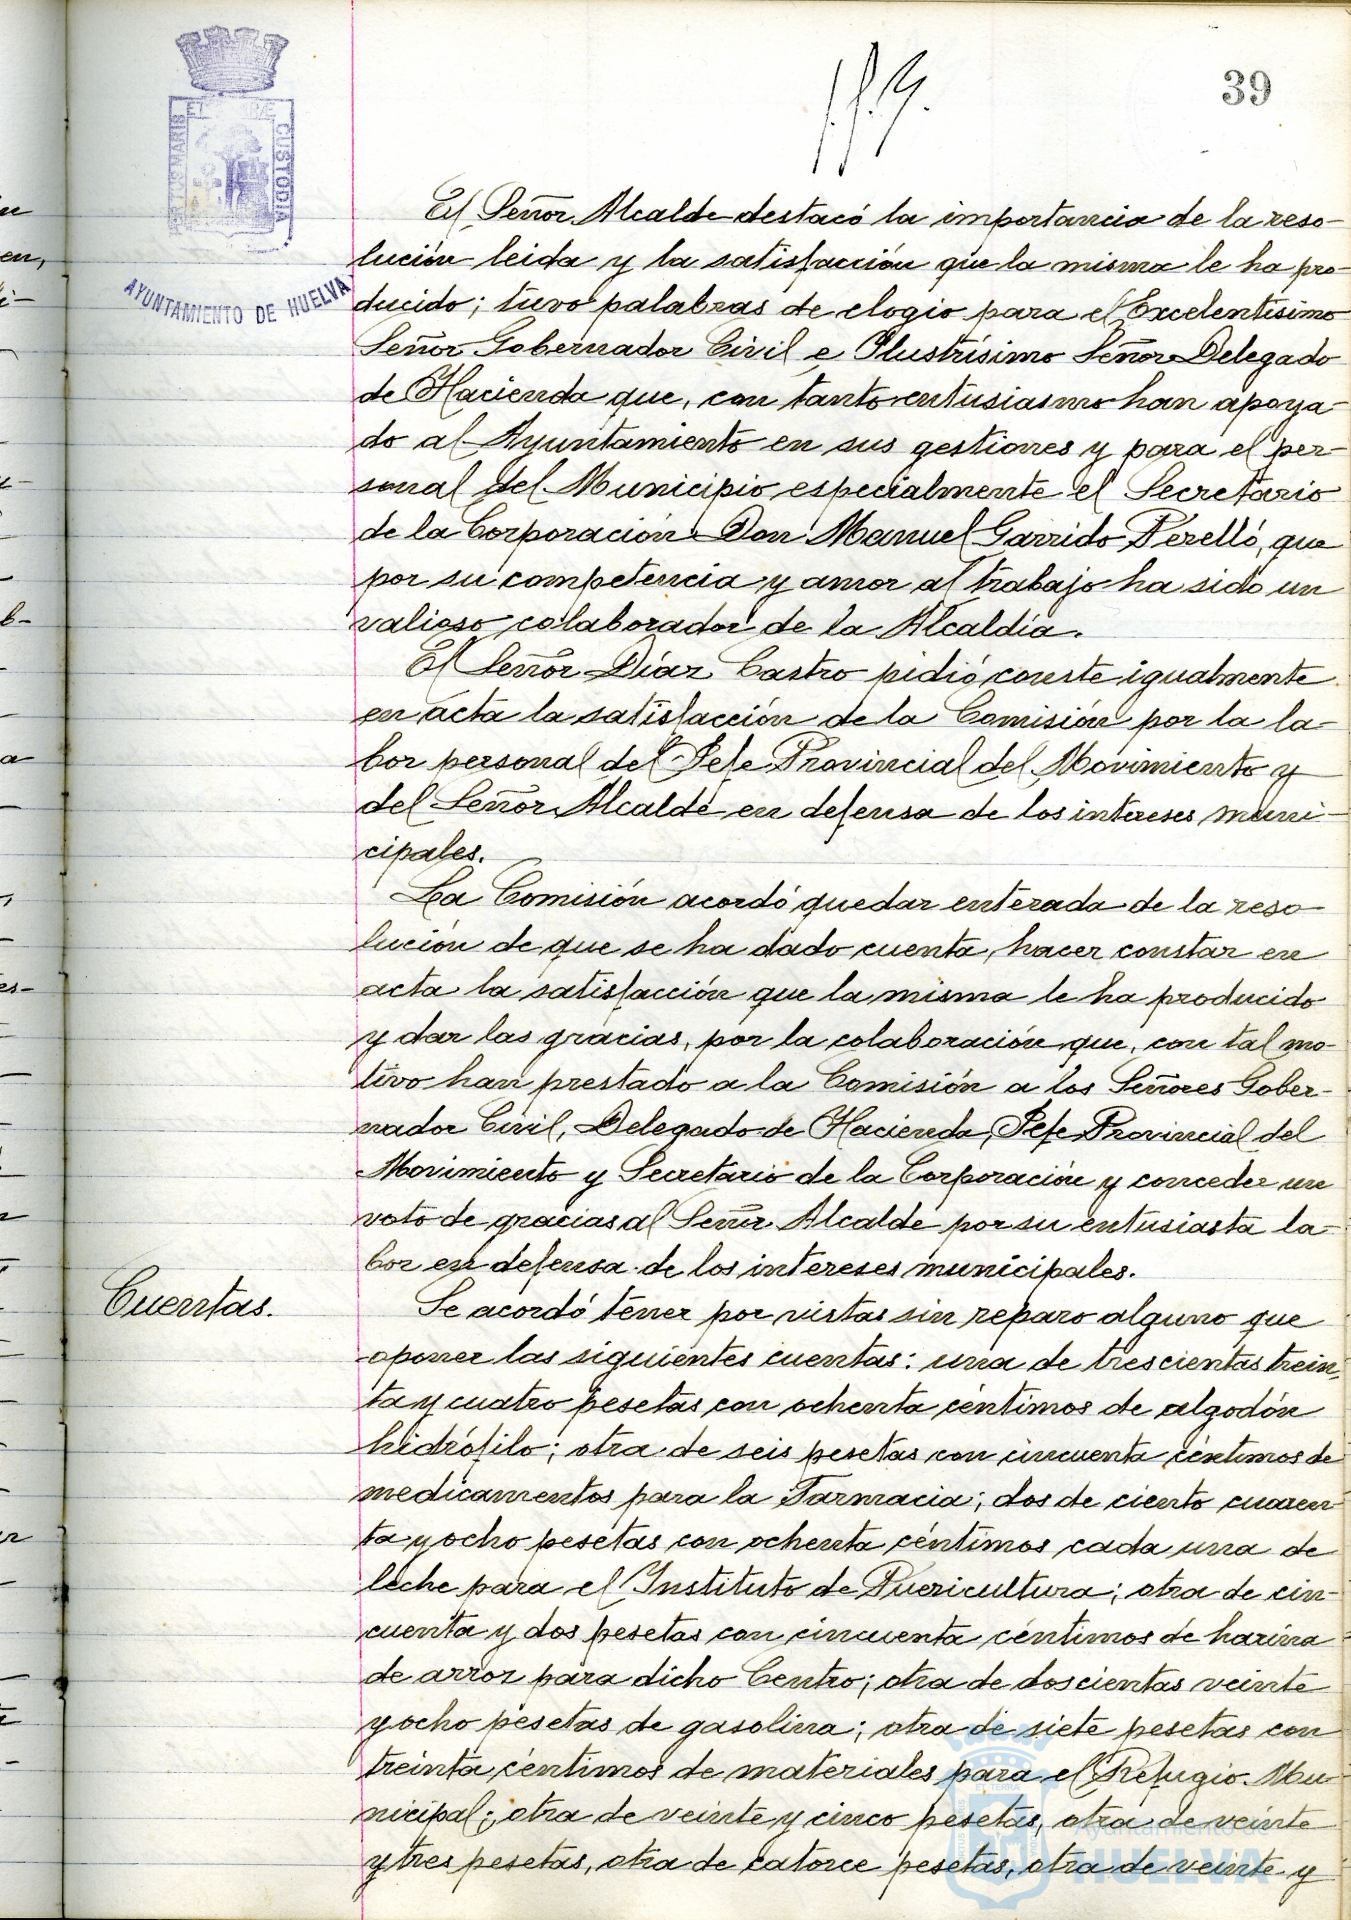 39
PORTUS MARIS ET TERRAE CUSTODIA
AYUNTAMIENTO DE HUELVA
El Señor Alcalde destacó la importancia de la reso-
lución leida y la satisfacción que la misma le ha pro-
ducido; tuvo palabras de elogio para el Excelentísimo
Señor Gobernador Civil e Ilustrísimo Señor Delegado
de Hacienda que, con tanto entusiasmo han apoya-
do al Ayuntamiento en sus gestiones y para el per-
sonal del Municipio especialmente el Secretario
de la Corporación Don Manuel Garrido Perelló, que
por su competencia y amor al trabajo ha sido un
valioso colaborador de la Alcaldía.
El Señor Díaz Castro pidió conste igualmente
en acta la satisfacción de la Comisión por la la-
bor personal del Jefe Provincial del Movimiento y
del Señor Alcalde en defensa de los intereses muni-
cipales.
La Comisión acordó quedar enterada de la reso-
lución de que se ha dado cuenta, hacer constar en
acta la satisfacción que la misma le ha producido
y dar las gracias, por la colaboración que, con tal mo-
tivo han prestado a la Comisión a los Señores Gober-
nador Civil, Delegado de Hacienda, Jefe Provincial del
Movimiento y Secretario de la Corporación y conceder un
voto de gracias al Señor Alcalde por su entusiasta la-
bor en defensa de los intereses municipales.
Cuentas.
Se acordó tener por vistas sin reparo alguno que
oponer las siguientes cuentas: una de trescientas trein-
ta y cuatro pesetas con ochenta céntimos de algodón
hidrófilo; otra de seis pesetas con cincuenta céntimos de
medicamentos para la Farmacia; dos de ciento cuaren
ta y ocho pesetas con ochenta céntimos cada una de
leche para el Instituto de Puericultura; otra de cin-
cuenta y dos pesetas con cincuenta céntimos de harina
de arroz para dicho Centro; otra de doscientas veinte
y ocho pesetas de gasolina; otra de siete pesetas con
treinta céntimos de materiales para el Refugio Mu-
nicipal; otra de veinte y cinco pesetas, otra de veinte
y tres pesetas, otra de catorce pesetas, otra de veinte y
Ayuntamiento de
HUELVA